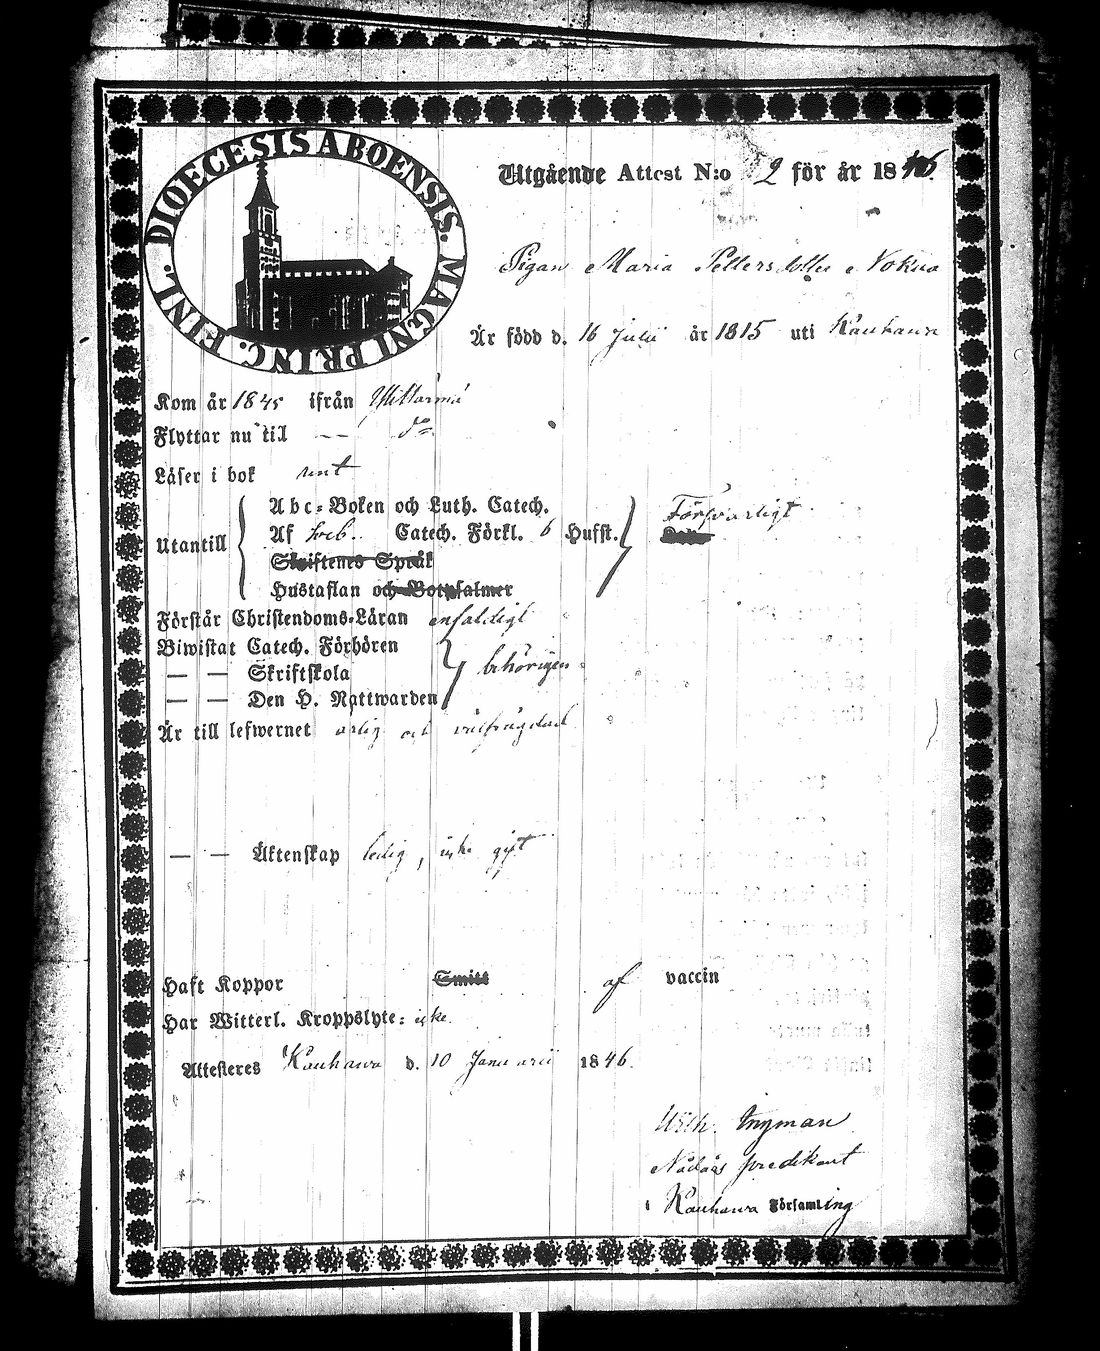 DIOECESIS ABOENSIS. MAGNI PRINC. FINL.
Utgående Attest N:o 2 för år 1846.
Pigan Maria Pettersdotter Nokua
Är född d. 16 Julii år 1815 uti Kauhava
Kom år 1845 ifrån
Flyttar nu til — d:o
Läser i bok rent
Utantill
Abc-Boken och Luth. Catech.
Af Sveb. Catech. Förkl. 6 Hufst.
Försvarligt
Skriftenes Språk
Hustaflan och Botpsalmer
Förstår Christendoms-Läran enfaldigt
Biwistat Catech. Förhören
— — Skriftskola behörigen
— — Den H. Nattwarden
Är till lefwernet ärlig och välfrägdad
— — Äktenskap ledig, icke gift
Haft Koppor Smitt af vaccin
Har Witterl. Kroppslyte: icke
Attesteres Kauhava d. 10 Januarii 1846.
Wilh. Ingman
Nådårs predikant
i Kauhava Församling